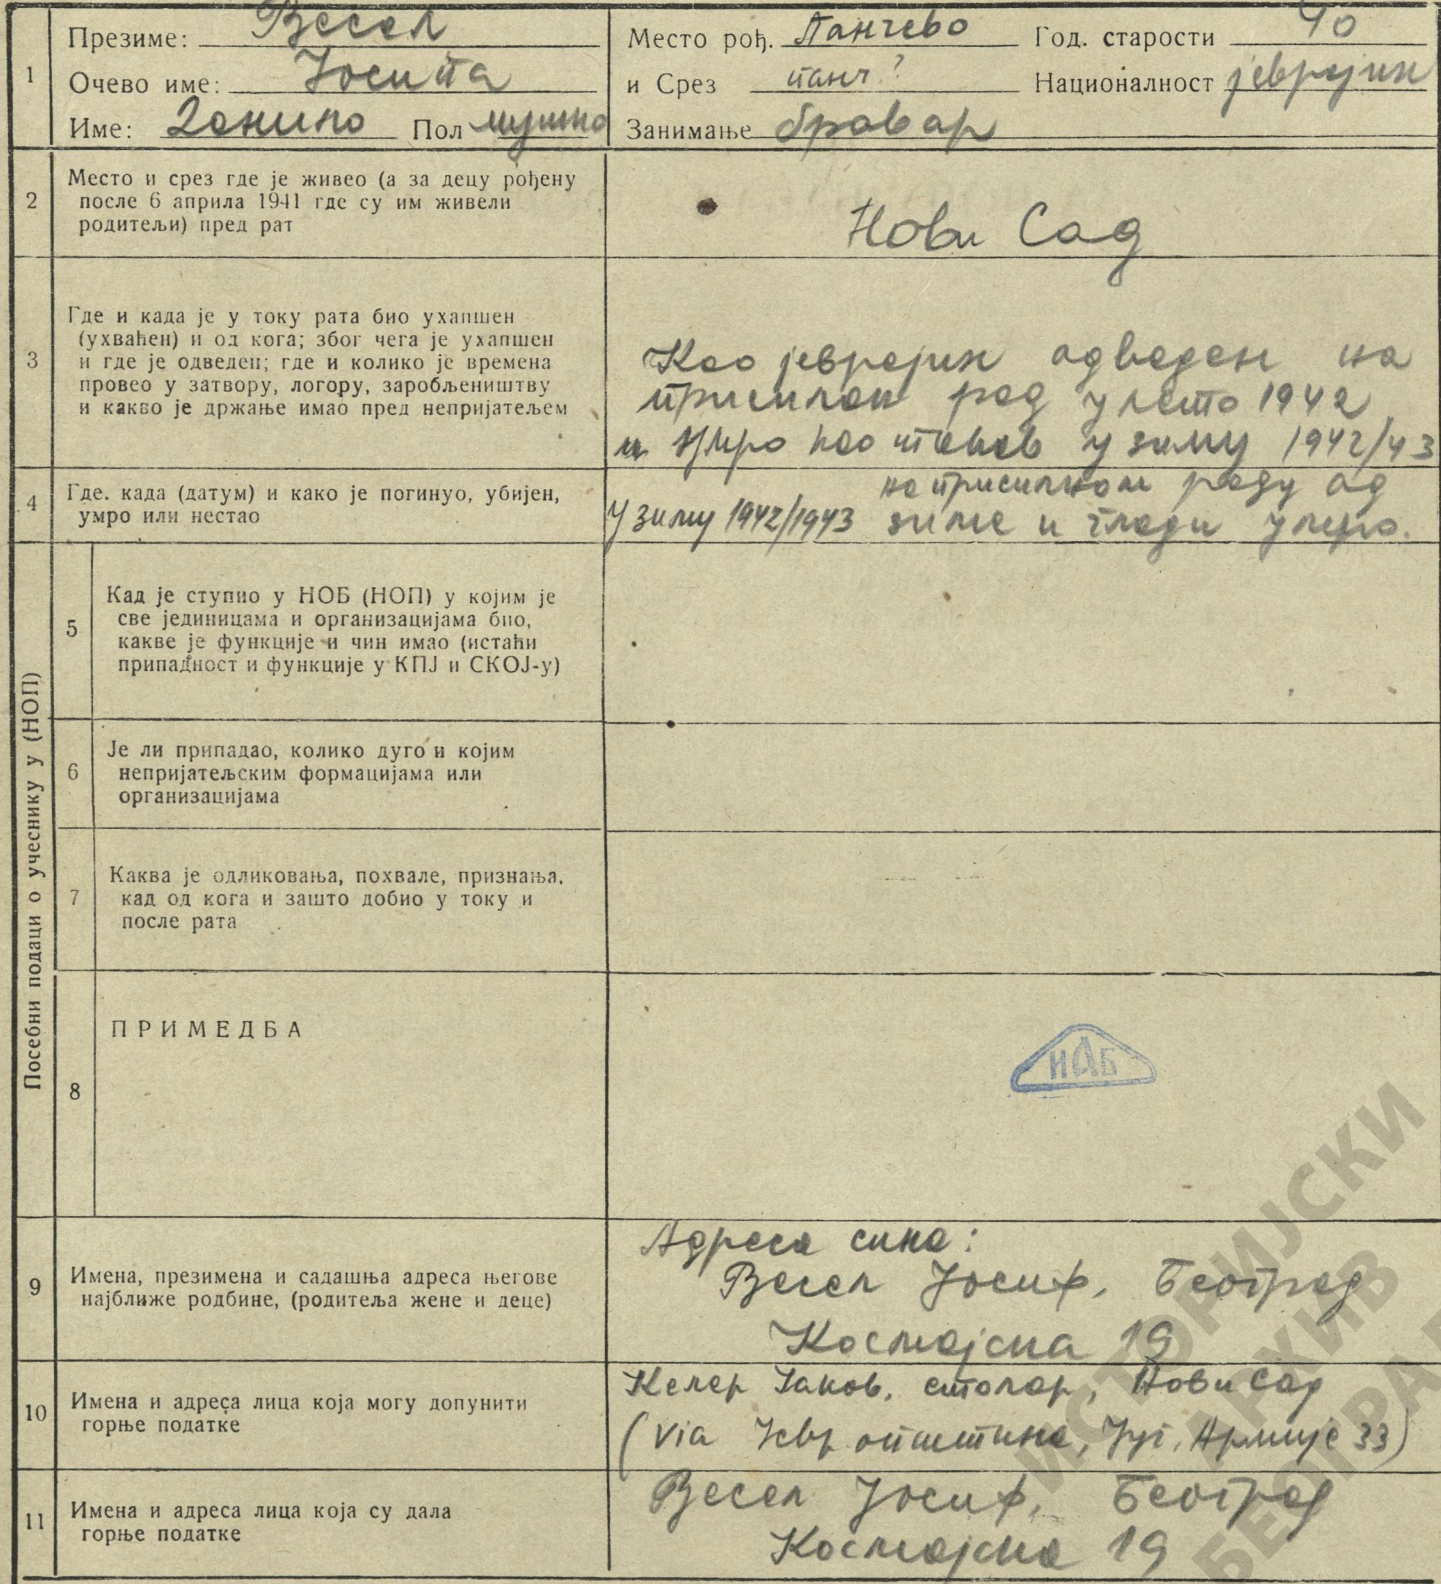 1
Презиме: Весел
Очево име: Јосипа
Име: Данило Пол мушко
Место рођ. Панчево Год. старости 40
и Срез панч? Националност јеврејин
Занимање бравар
2
Место и срез где је живео (а за децу рођену
после 6 априла 1941 где су им живели
родитељи) пред рат
Нови Сад
3
Где и када је у току рата био ухапшен
(ухваћен) и од кога; због чега је ухапшен
и где је одведен; где и колико је времена
провео у затвору, логору, заробљеништву
и какво је држање имао пред непријатељем
Као јеврејин одведен на
присилан рад у лето 1942
и умро као такав у зиму 1942/43
4
Где. када (датум) и како је погинуо, убијен,
умро или нестао
на присилном раду од
У зиму 1942/1943 зиме и глади умро.
Посебни подаци о учеснику у (НОП)
5
Кад је ступио у НОБ (НОП) у којим је
све јединицама и организацијама био,
какве је функције и чин имао (истаћи
припадност и функције у КПЈ и СКОЈ-у)
6
Је ли припадао, колико дуго и којим
непријатељским формацијама или
организацијама
7
Каква је одликовања, похвале, признања,
кад од кога и зашто добио у току и
после рата
8
ПРИМЕДБА
ИАБ
9
Имена, презимена и садашња адреса његове
најближе родбине, (родитеља жене и деце)
Адреса сина:
Весел Јосиф, Београд
Космајска 19
10
Имена и адреса лица која могу допунити
горње податке
Келер Јаков, столар, Нови Сад
(via Јевр општина, Југ. Армије 33)
11
Имена и адреса лица која су дала
горње податке
Весел Јосиф, Београд
Космајска 19
ИСТОРИЈСКИ
АРХИВ